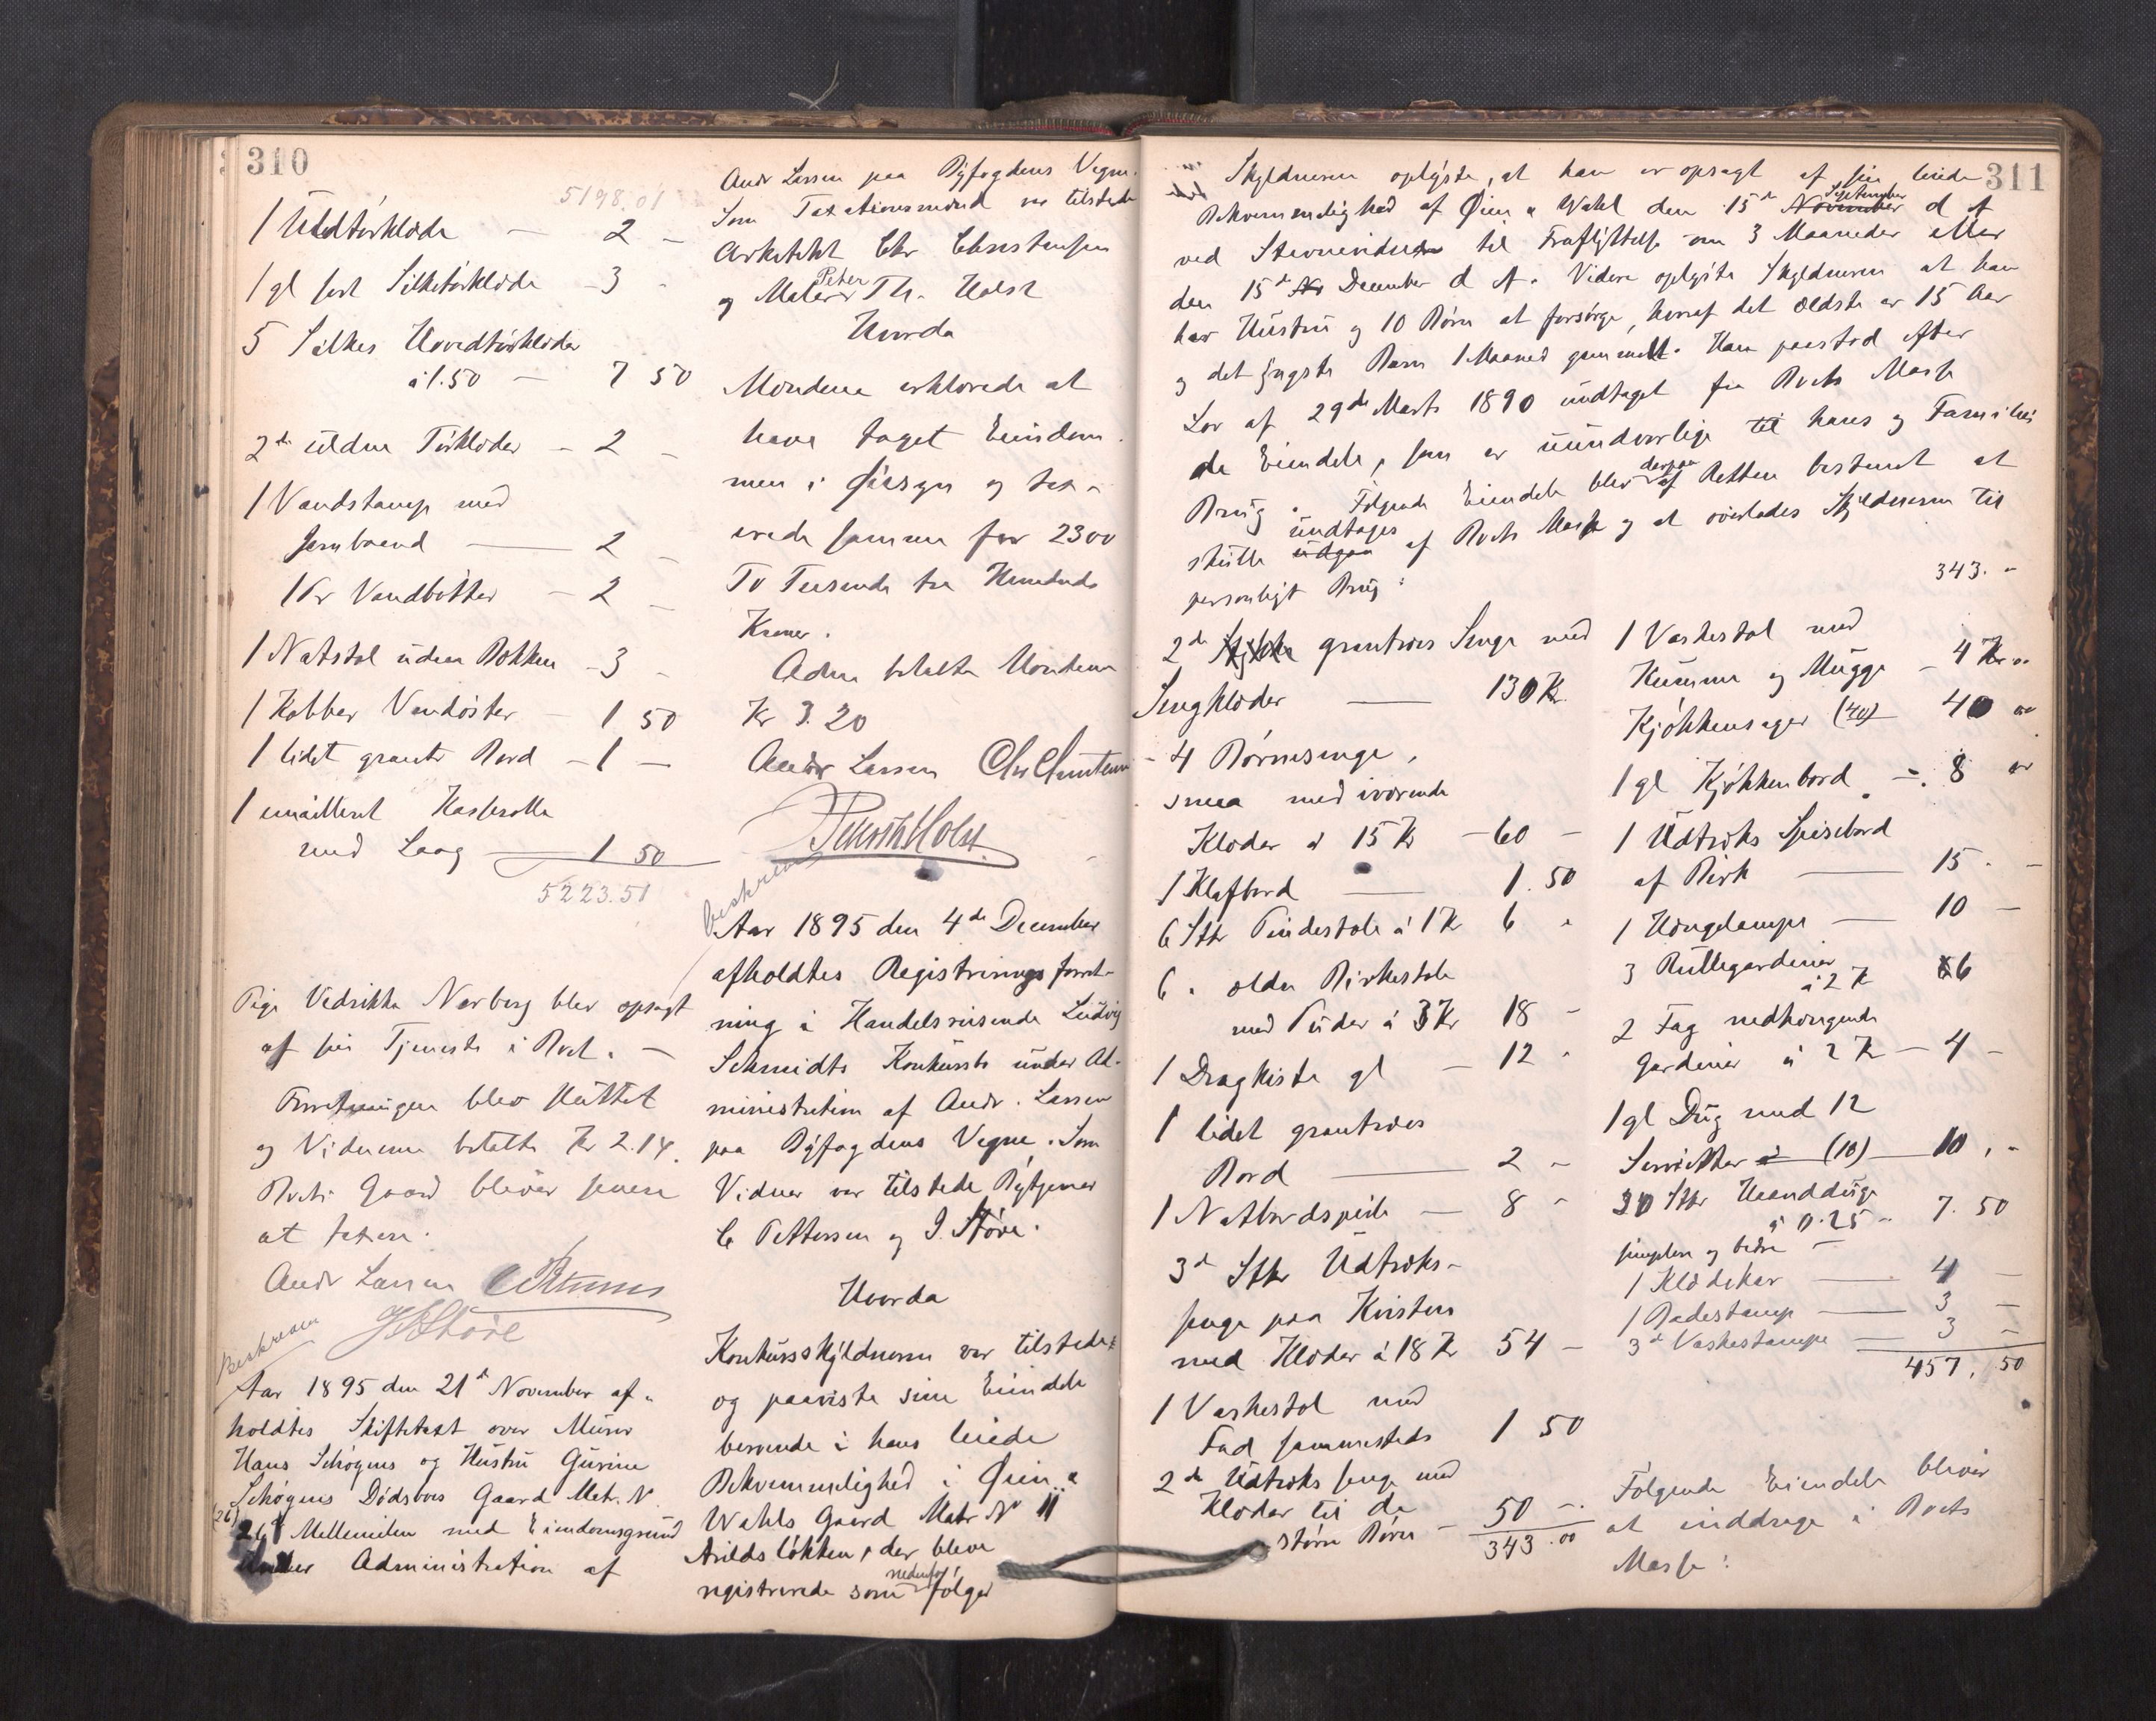 310
5198.01
1 Uldtörklæde — 2 —
1 gl sort Silketörklæde — 3 -
5 Silkes Hovedtörklæder
á 1.50 — 7 50
2de uldne Törklæder — 2 —
1 Vandstamp med
Jernbaand — 2 —
1 Pr Vandbötter — 2 —
1 Natstol uden Bækken — 3 -
1 Kobber Vandöster — 1 50
1 lidet graat Bord — 1 —
1 emailleret Kasserolle
med Laag — 1 50
5223.51
Pige Vedrikke Norberg blev opsagt
af sin Tjeneste i Boet. —
Forretningen blev sluttet
og Vidnerne betalte Kr 2.14.
Boets Gaard bliver senere
at taxere.
Andr Larsen
J Støve
Beskreven
Aar 1895 den 21de November af-
holdtes Skiftetaxt over Murer
Hans Schøgens og Hustru Gurine
Schøgens Dødsbos Gaard Matr. N.
(26)
26 Mellemilen med Eiendomsgrund
under Administration af
Andr Larsen paa Byfogdens Vegne.
Som Taxationsmænd var tilstede
Arkitekt Chr Christensen
og Maler Peter Th. Holst
Hvorda
Mændene erklærede at
have taget Eiendom-
men i Öiesyn og tax-
erede samme for 2300
To Tusende tre Hundrede
Kroner.
Aden betalte Mændene
Kr 3.20
Andr Larsen Chr Christensen
Peter Th Holst.
beskreven
Aar 1895 den 4de December
afholdtes Registreringsforret-
ning i Handelsreisende Ludvig
Schmidts Konkursbo under Ad-
ministration af Andr. Larsen
paa Byfogdens Vegne. Som
Vidner var tilstede Bytjener
C Pettersen og J. Støve.
Hvorda
Konkursskyldneren var tilstede
og paaviste sine Eiendele
beroende i hans leiede
Bekvemmelighed i Øien &
Wahls Gaard Matr N 11
Arildsløkken, der bleve
registrerede som nedenfor følger
311
Skyldneren oplyste, at han er opsagt af sin leiede
Bekvemmelighed af Øien & Wahl den 15de November September d A
ved Stevnevidner til Fraflyttelse om 3 Maaneder eller
den 15de December d A. Videre oplyste Skyldneren at han
har Hustru og 10 Börn at forsörge, hvoraf det ældste er 15 Aar
og det yngste Barn 1 Maaned gammelt. Han paastod efter
Lov af 29de Marts 1890 undtaget fra Boets Masse
de Eiendele, som er uundværlige til hans og Families
Brug. Fölgende Eiendele blev derpaa af Retten bestemt at
skulle udgaa undtages af Boets Masse og at overlades Skyldneren til
personligt Brug:
2de graatræes Senge med
Sengklæder — 130 Kr.
4 Børnesenge,
smaa med iværende
Klæder á 15 Kr — 60 —
1 Klafbord — 1.50
6 Stk Pindestole á 1 Kr 6 "
6 " ældre Birkestole
med Puder á 3 Kr 18 -
1 Dragkiste gl — 12 "
1 lidet graatræes
Bord — 2 -
1 Natbordspeile — 8 -
3de Stk Udtræks-
senge paa Kvisten
med Klæder á 18 Kr 54 —
1 Vaskestol med
Fad sammesteds 1 50
2de Udtræks senge med
Klæder til de
større Børn — 50 —
343.00
343. -
1 Vaskestol med
Kumme og Mugge — 4 Kr "
Kjökkensager (40) — 40 "
1 gl Kjökkenbord — 8 "
1 Udtræks Spisebord
af Birk — 15 . —
1 Hængelampe — 10 —
3 Rullegardiner
á 2 Kr 6
2 Fag nedhængende
Gardiner á 2 Kr — 4 —
1 gl Dug med 12
Servietter (10) — 10. -
30 Stk Haandduge
á 0.25 - 7. 50
simplere og bedre —
1 Klædekar — 4 —
1 Badestamp — 3 —
3de Vaskestampe — 3 —
457. 50
Følgende Eiendele bliver
at inddrage i Boets
Masse: